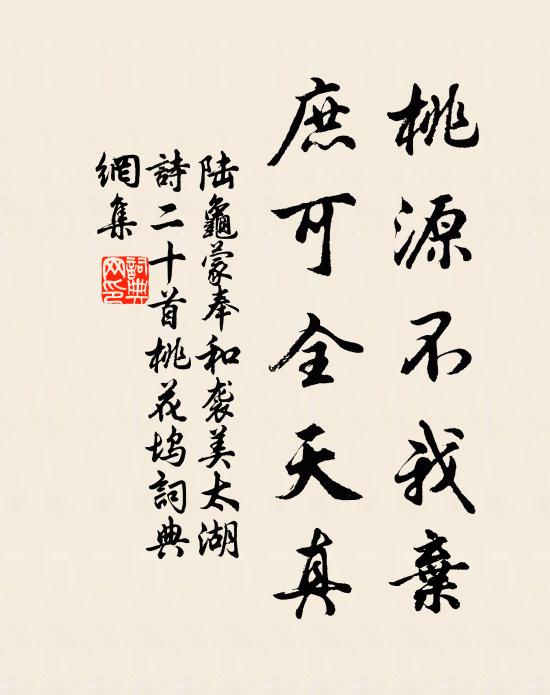 桃源不我棄
庶可全天真
陸龜蒙奉和袭美太湖
詩二十首桃花塢詞典
網集
詞典網印